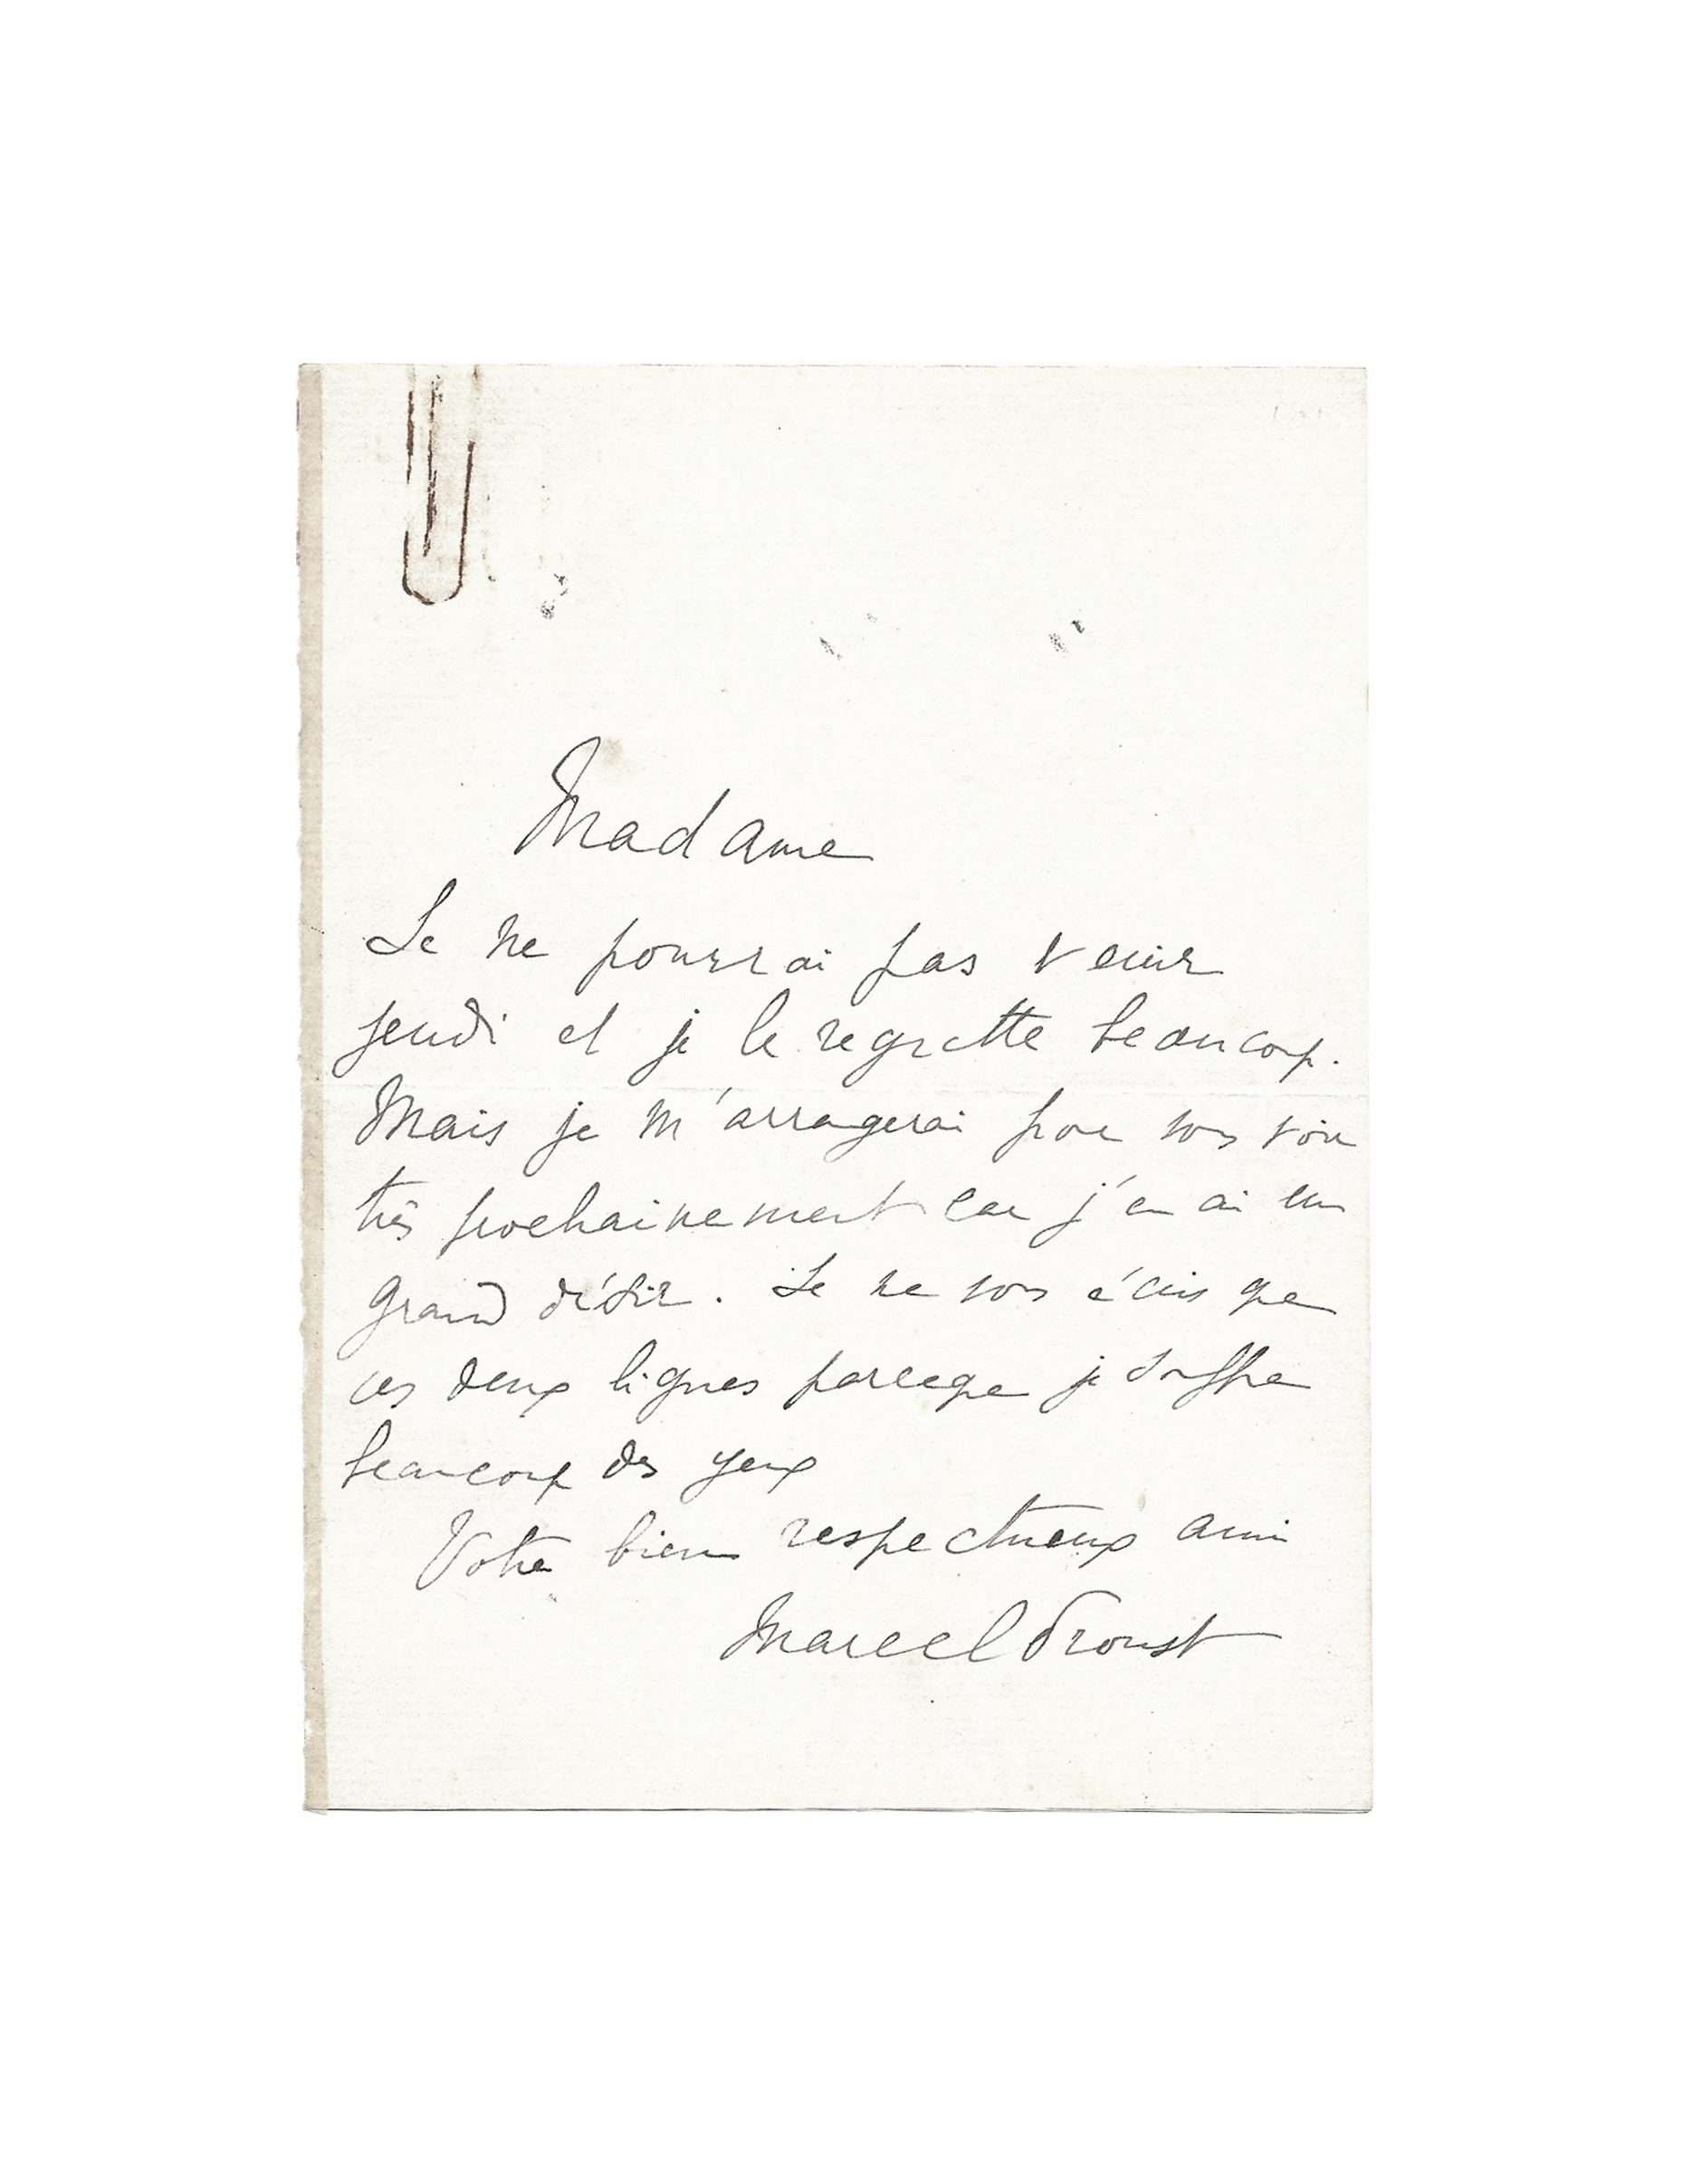 Madame
Je ne pourrai pas venir
jeudi et je le regrette beaucoup.
Mais je m'arrangerai pour vous voir
très prochainement car j'en ai un
grand désir. Je ne vous écris que
ces deux lignes parceque je souffre
beaucoup des yeux
Votre bien respectueux ami
Marcel Proust